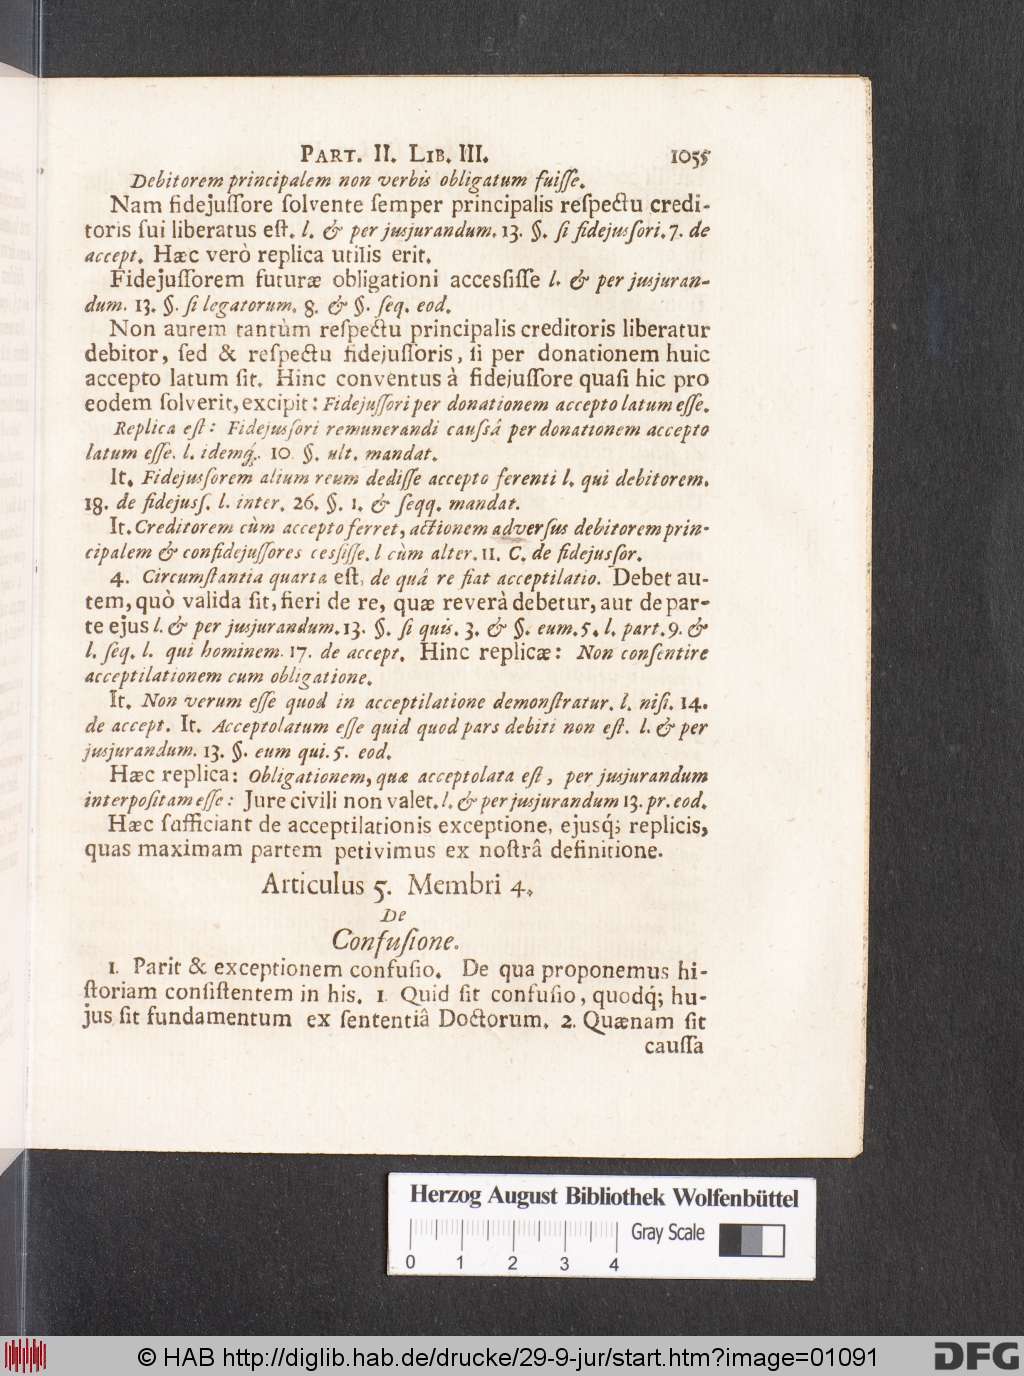 PART. II. LIB. III. 1055
Debitorem principalem non verbis obligatum fuiſſe.
Nam fidejuſſore ſolvente ſemper principalis reſpectu credi-
toris ſui liberatus eſt. l. & per jusjurandum. 13. §. ſi fidejusſori. 7. de
accept. Hæc verò replica utilis erit.
Fidejuſſorem futuræ obligationi acceſſiſſe l. & per jusjuran-
dum. 13. §. ſi legatorum. 8. & §. ſeq. eod.
Non autem tantùm reſpectu principalis creditoris liberatur
debitor, ſed & reſpectu fidejuſſoris, ſi per donationem huic
accepto latum ſit. Hinc conventus à fidejuſſore quaſi hic pro
eodem ſolverit, excipit: Fidejuſſori per donationem accepto latum eſſe.
Replica eſt: Fidejusſori remunerandi cauſsâ per donationem accepto
latum eſſe. l. idemq́;. 10. §. ult. mandat.
It. Fidejusſorem alium reum dediſſe accepto ferenti l. qui debitorem.
18. de fidejusſ. l. inter. 26. §. 1. & ſeqq. mandat.
It. Creditorem cùm accepto ferret, actionem adverſus debitorem prin-
cipalem & confidejuſſores cesſiſſe. l cùm alter. 11. C. de fidejusſor.
4. Circumſtantia quarta eſt, de quâ re fiat acceptilatio. Debet au-
tem, quò valida ſit, fieri de re, quæ reverà debetur, aut de par-
te ejus l. & per jusjurandum. 13. §. ſi quis. 3. & §. eum. 5. l. part. 9. &
l. ſeq. l. qui hominem. 17. de accept. Hinc replicæ: Non conſentire
acceptilationem cum obligatione.
It. Non verum eſſe quod in acceptilatione demonſtratur. l. niſi. 14.
de accept. It. Acceptolatum eſſe quid quod pars debiti non eſt. l. & per
jusjurandum. 13. §. eum qui. 5. eod.
Hæc replica: Obligationem, quæ acceptolata eſt, per jusjurandum
interpoſitam eſſe: Jure civili non valet. l. & per jusjurandum 13. pr. eod.
Hæc ſufficiant de acceptilationis exceptione, ejusq́; replicis,
quas maximam partem petivimus ex noſtrâ definitione.
Articulus 5. Membri 4.
De
Confuſione.
1. Parit & exceptionem confuſio. De qua proponemus hi-
ſtoriam conſiſtentem in his. 1 Quid ſit confuſio, quodq́; hu-
jus ſit fundamentum ex ſententiâ Doctorum. 2. Quænam ſit
cauſſa
Herzog August Bibliothek Wolfenbüttel
Gray Scale
0 1 2 3 4
© HAB http://diglib.hab.de/drucke/29-9-jur/start.htm?image=01091
DFG